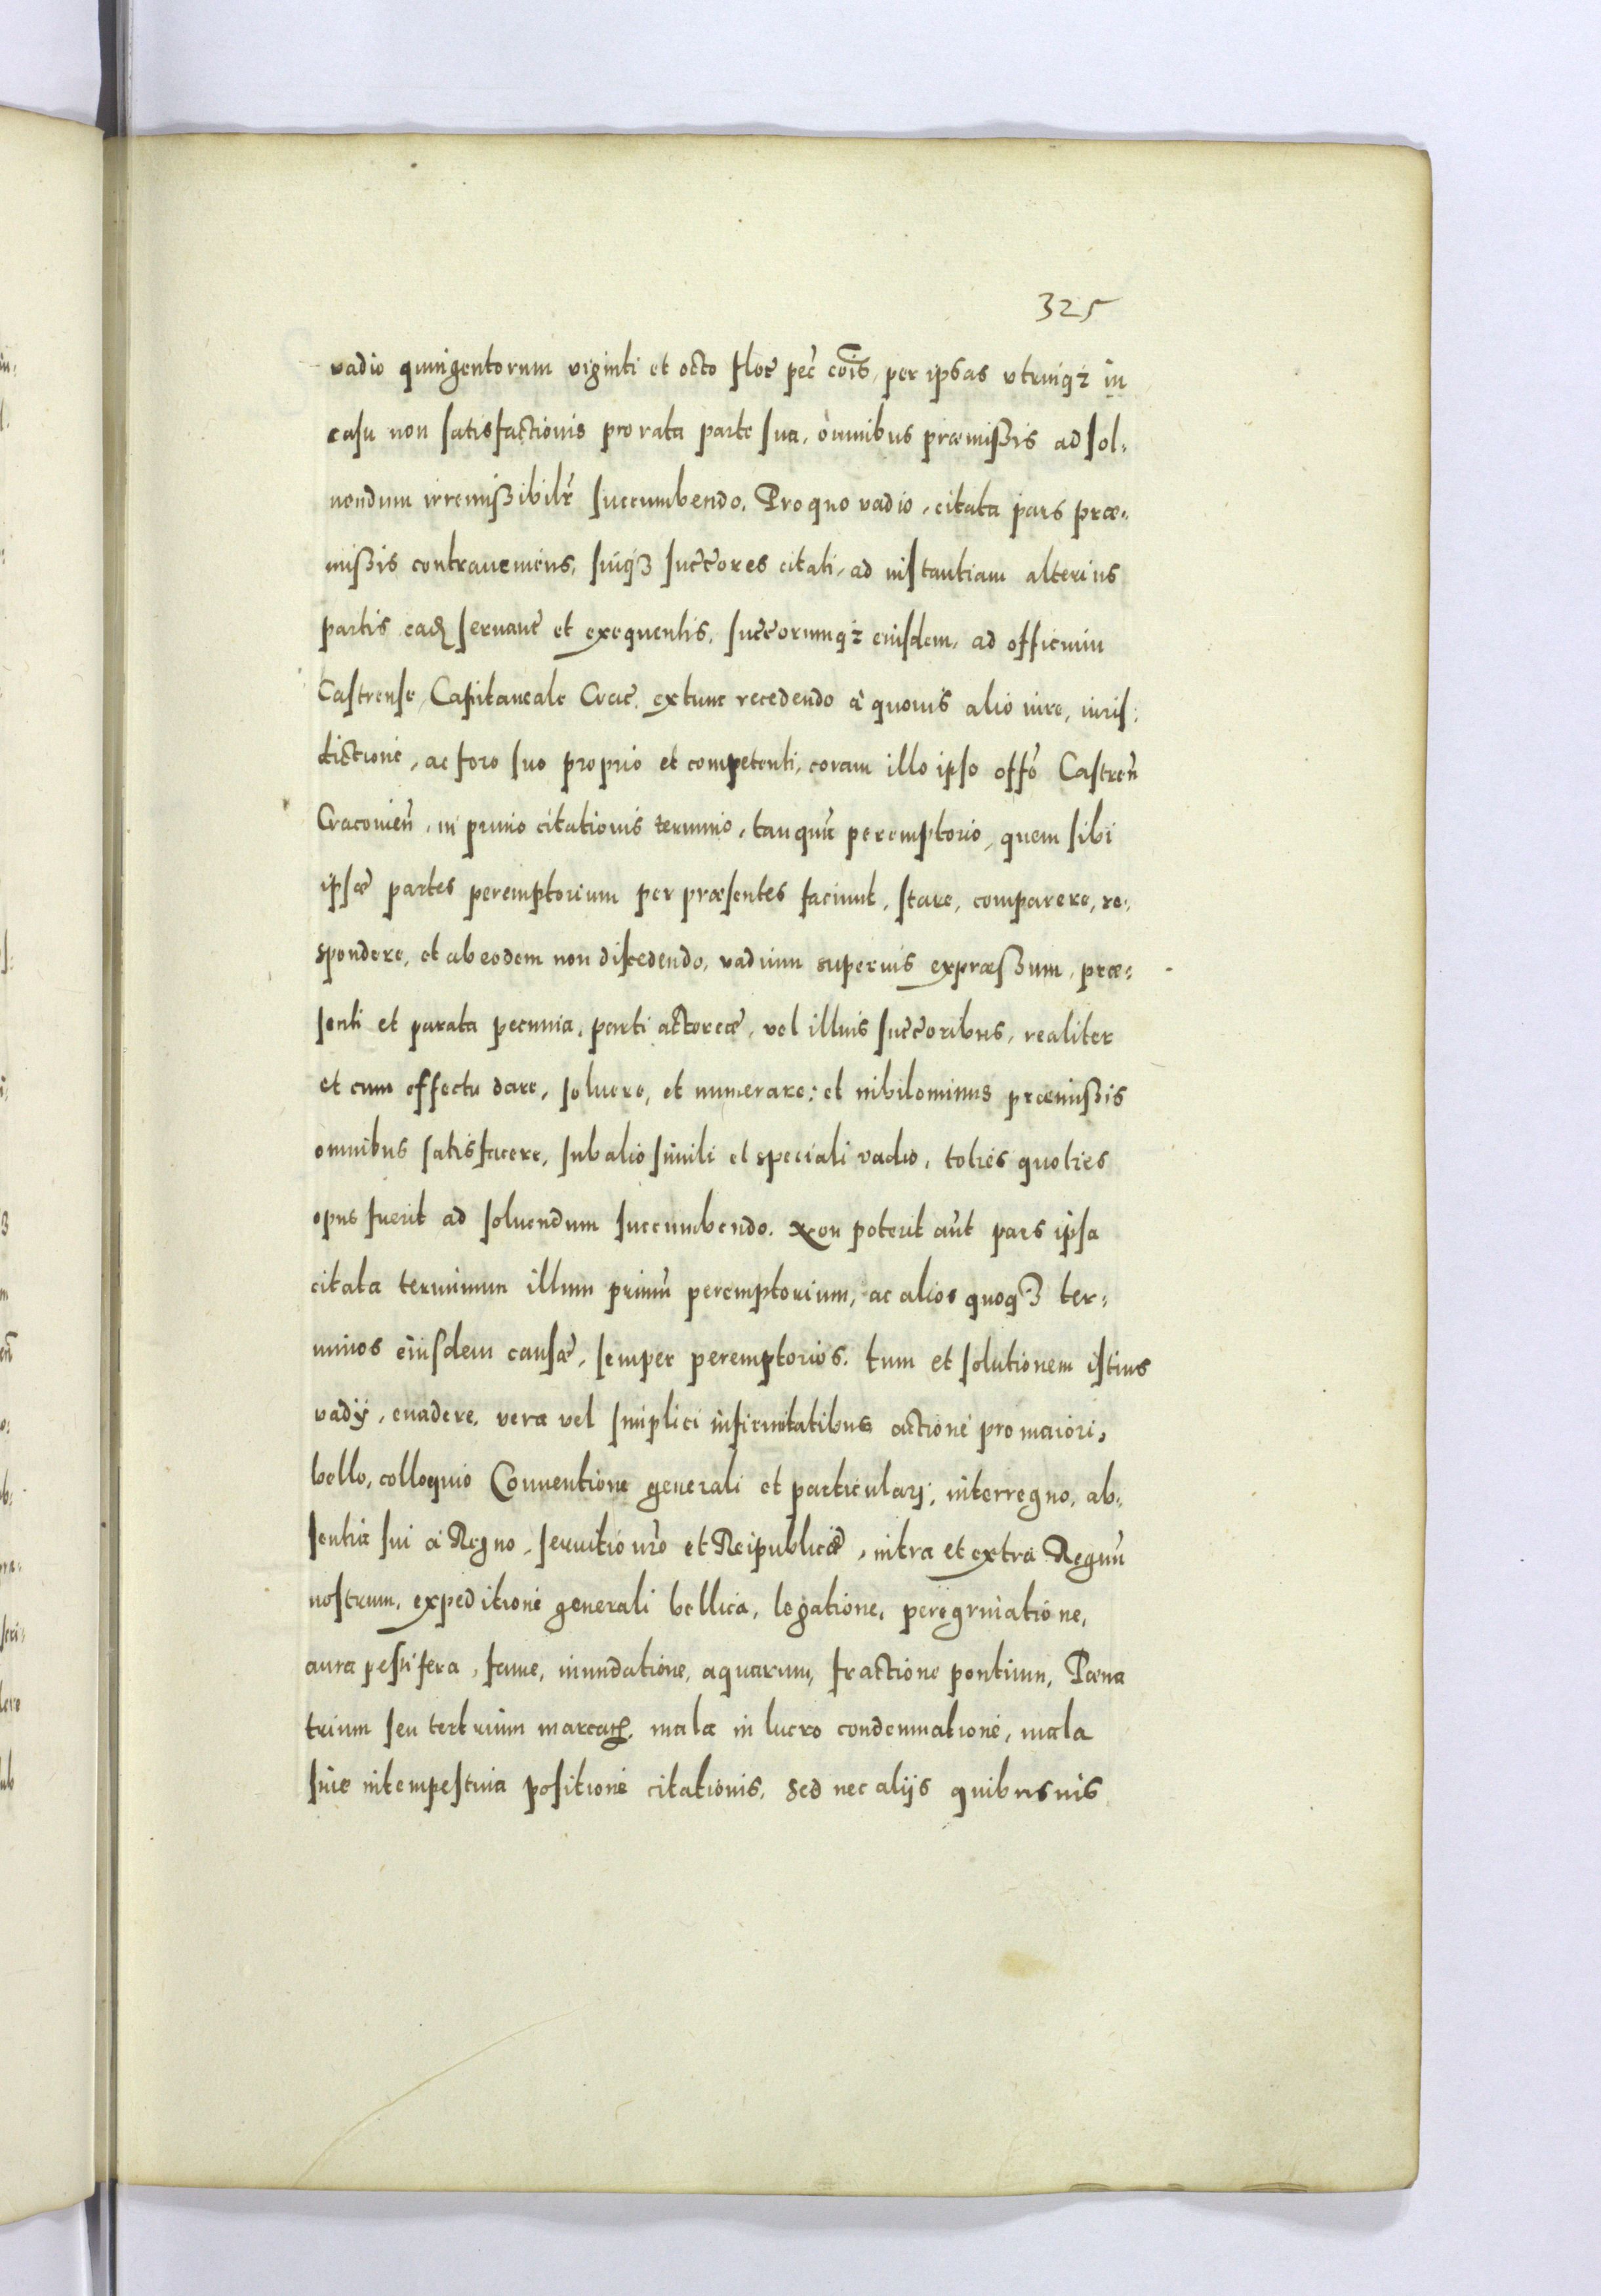 325
vadio quingentorum viginti et octo floꝛ pec̃ cõis, per ipsas vtrinqȝ in
casu non satisfactionis pro rata parte sua, omnibus præmißis ad sol:
uendum irremißibilr̃ succumbendo. Pro quo vadio, citata pars præ:
mißis contraueniens, suiqȝ succ̃ores citati, ad instantiam alterius
partis eadẽ seruanť et exequentis, succ̃orumqȝ eiusdem, ad officium
Castrense, Capitaneale Crac̃. extunc recedendo à quouis alio iure, iuris:
dictione, ac foro suo proprio et competenti, coram illo ipso offõ Castreñ
Cracouieñ, in primo citationis termino, tanquã peremptorio, quem sibi
ipsæ partes peremptorium per præsentes faciunt, stare, comparere, re:
spondere, et ab eodem non discedendo, vadium superius expræßum, præ:
senti et parata pecunia, parti actoreæ, vel illius succ̃oribus, realiter
et cum effectu dare, soluere, et numerare: et nihilominus præmißis
omnibus satisfacere, sub alio simili et speciali vadio, toties quoties
opus fuerit ad soluendum succumbendo. Non poterit aũt pars ipsa
citata terminum illum primũ peremptorium, ac alios quoqȝ ter:
minos eiusdem causæ, semper peremptorios. tum et solutionem istius
vadÿ, euadere, vera vel simplici infirmitatibus actione pro maiori,
bello, colloquio Conuentione generali et particulari, interregno, ab:
sentia sui à Regno, seruitio nr̃o et Reipublicæ, intra et extra Regnũ
nostrum, expeditione generali bellica, legatione, peregrinatione,
aura pestifera, fame, inundatione, aquarum, fractione pontium, Pæna
trium seu tertrium marcarꝝ, mala in lucro condemnatione, mala
siue intempestiua positione citationis. Sed nec alijs quibusuis